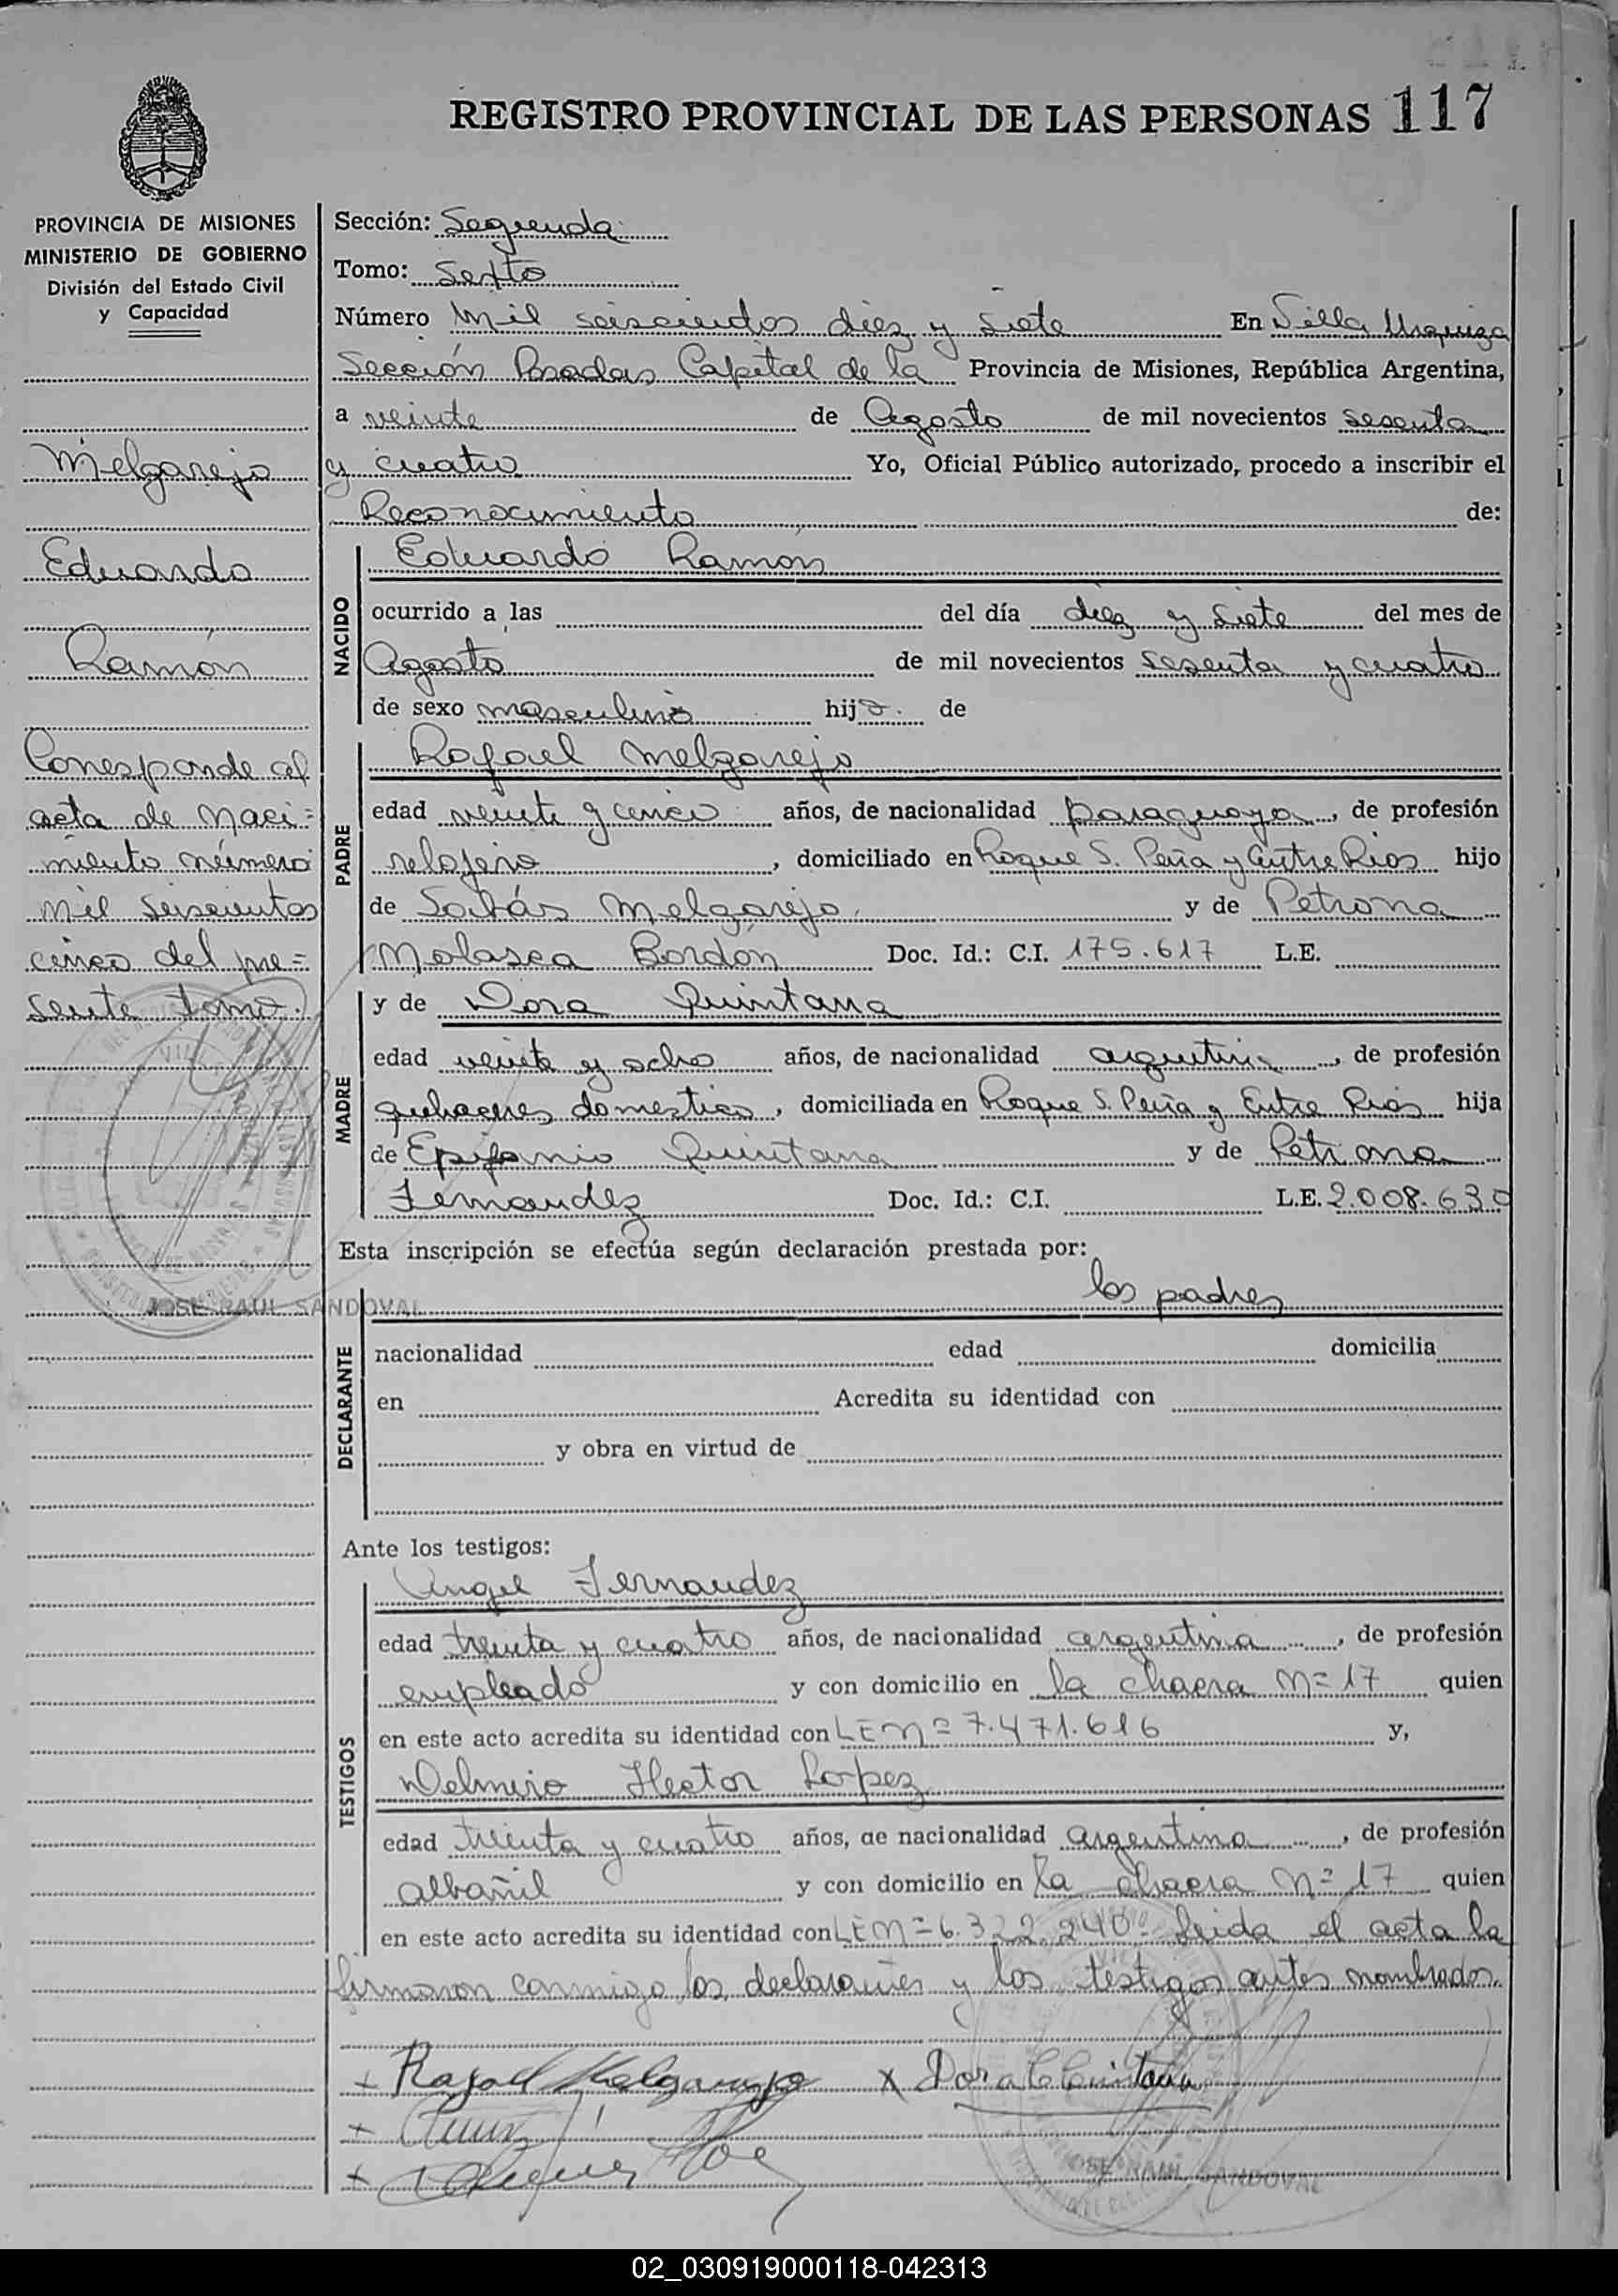 REGISTRO PROVINCIAL DE LAS PERSONAS 117
PROVINCIA DE MISIONES
MINISTERIO DE GOBIERNO
División del Estado Civil
y Capacidad
Melgarejo
Eduardo
Ramón
Corresponde al
acta de naci=
miento número
mil seiscientos
cinco del pre=
sente tomo.
JOSE RAUL SANDOVAL
Sección: Segunda
Tomo: Sexto
Número mil seiscientos diez y siete En Villa Urquiza
Sección Posadas Capital de la Provincia de Misiones, República Argentina,
a veinte de Agosto de mil novecientos sesenta
y cuatro Yo, Oficial Público autorizado, procedo a inscribir el
Reconocimiento de:
NACIDO
Eduardo Ramón
ocurrido a las del día diez y siete del mes de
Agosto de mil novecientos sesenta y cuatro
de sexo masculino hijo de
PADRE
Rafael Melgarejo
edad veinte y cinco años, de nacionalidad paraguaya, de profesión
relojero, domiciliado en Roque S. Peña y Entre Rios hijo
de Sabás Melgarejo y de Petrona
Molasca Bordón Doc. Id.: C.I. 175.617 L.E.
MADRE
y de Dora Quintana
edad veinte y ocho años, de nacionalidad argentina, de profesión
quehaceres domesticos, domiciliada en Roque S. Peña y Entre Rios hija
de Epifanio Quintana y de Petrona
Fernandez Doc. Id.: C.I. L.E. 2.008.630
Esta inscripción se efectúa según declaración prestada por:
los padres
DECLARANTE
nacionalidad edad domicilia
en Acredita su identidad con
y obra en virtud de
Ante los testigos:
TESTIGOS
Angel Fernandez
edad treinta y cuatro años, de nacionalidad argentina, de profesión
empleado y con domicilio en la chacra Nº 17 quien
en este acto acredita su identidad con LE Nº 7.471.616 y,
Delmiro Hector Lopez
edad treinta y cuatro años, de nacionalidad argentina, de profesión
albañil y con domicilio en la chacra Nº 17 quien
en este acto acredita su identidad con LE Nº 6.322.240. Leida el acta la
firmaron conmigo los declarantes y los testigos antes nombrados.
+ Rafael Melgarejo x Dora C Quintana
JOSE RAUL SANDOVAL
02_030919000118-042313